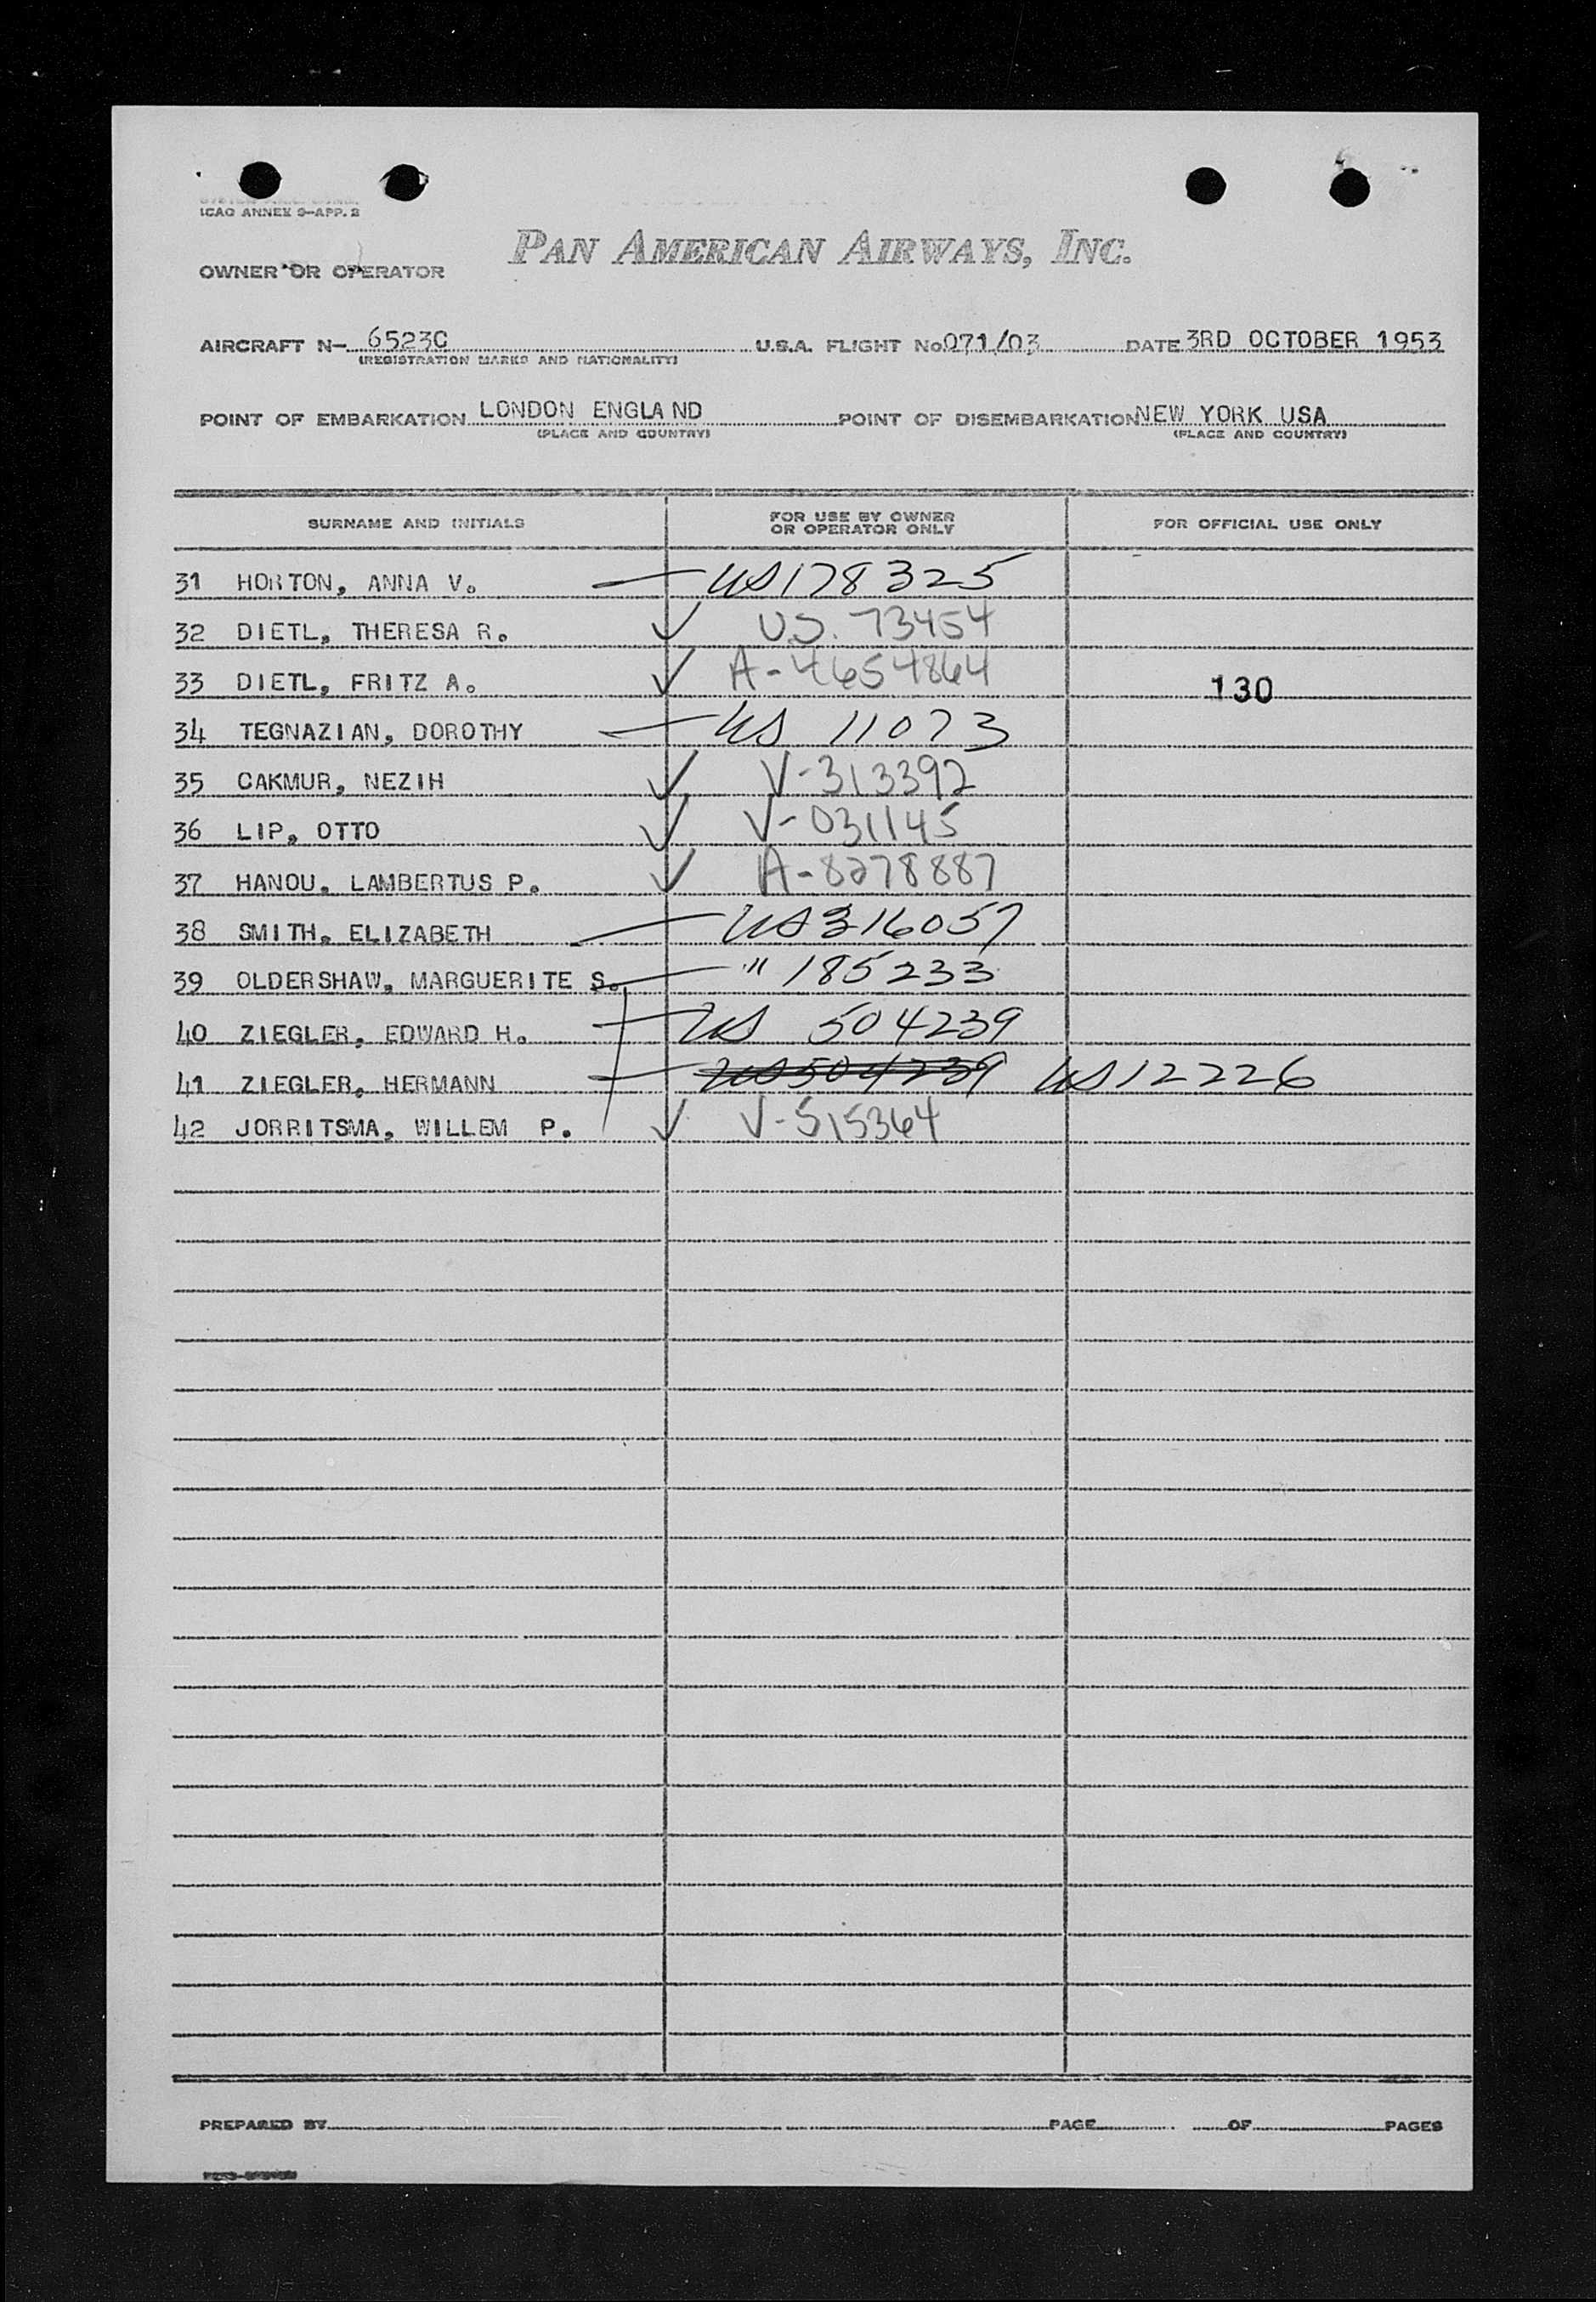 ICAO ANNEX 9-APP. 2
PAN AMERICAN AIRWAYS, INC.
OWNER OR OPERATOR
AIRCRAFT N- 6523C U.S.A. FLIGHT No. 071/03 DATE 3RD OCTOBER 1953
(REGISTRATION MARKS AND NATIONALITY)
POINT OF EMBARKATION LONDON ENGLA ND POINT OF DISEMBARKATION NEW YORK USA
(PLACE AND COUNTRY) (PLACE AND COUNTRY)
SURNAME AND INITIALS FOR USE BY OWNER OR OPERATOR ONLY FOR OFFICIAL USE ONLY
31 HORTON, ANNA V. — US 178325
32 DIETL, THERESA R. ✓ U.S. 73454
33 DIETL, FRITZ A. ✓ A-4654864 130
34 TEGNAZIAN, DOROTHY — US 11073
35 CAKMUR, NEZIH ✓ V-313392
36 LIP, OTTO ✓ V-031145
37 HANOU, LAMBERTUS P. ✓ A-8278887
38 SMITH, ELIZABETH — US 316057
39 OLDERSHAW, MARGUERITE S. — " 185233
40 ZIEGLER, EDWARD H. — US 504239
41 ZIEGLER, HERMANN — US 504239 US 12226
42 JORRITSMA, WILLEM P. ✓ V-515364
PREPARED BY PAGE OF PAGES